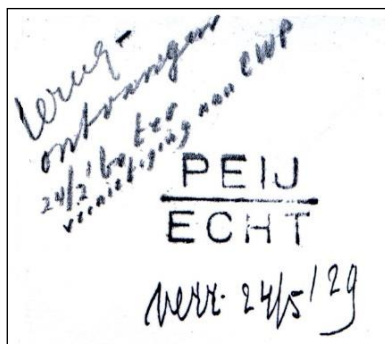 terug-
ontvangen
24/2 ter
vernietiging CWP
PEIJ
ECHT
verz. 24/5 '29